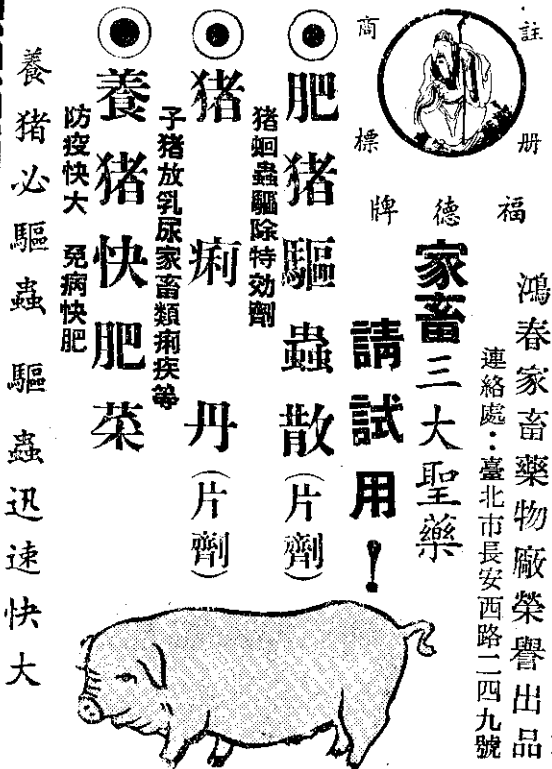 註册
商標
福德牌
鴻春家畜藥物廠榮譽出品
連絡處：臺北市長安西路二四九號
家畜三大聖藥
請試用！
肥猪驅蟲散（片劑）
猪蛔蟲驅除特効劑
猪痢丹（片劑）
子猪放乳尿家畜類痢疾等
養猪快肥菜
防疫快大 免病快肥
養猪必驅蟲 驅蟲迅速快大